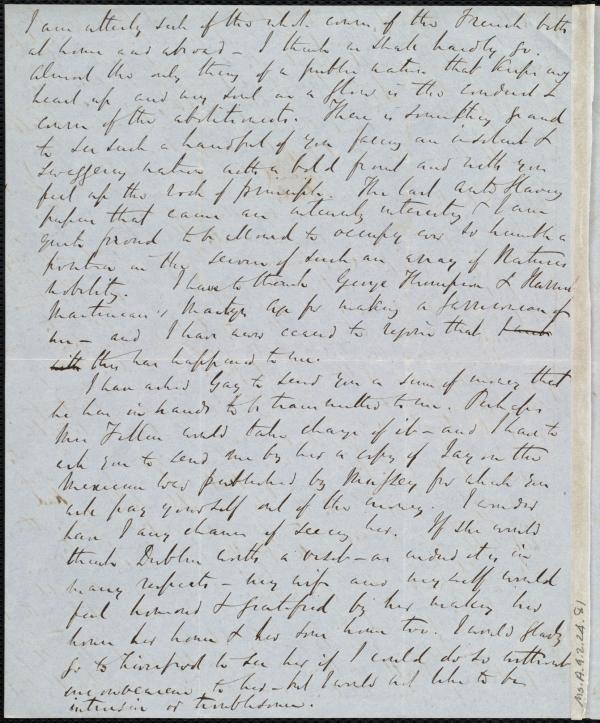 I am utterly sick of the whole course of the French both
at home and abroad – I think we shall hardly go.
Almost the only thing of a public nature that keeps my
heart up and my soul in a glow is the conduct &
course of the abolitionists. There is something grand
to see such a handful of you facing an insolent &
swaggering nation with a bold front and with your
feet up the rock of principle. The last Anti Slavery
papers that came are intensely interesting & I am
quite proud to be allowed to occupy ever so humble a
position in the service of such an array of Nature's
nobility. I have to thank George Thompson & Harriet
Martineau's Martyr Age for making a Garrisonian of
me – and I have never ceased to rejoice that
with this has happened to me.
I have asked Gay to send you a sum of money that
he has in hands to be transmitted to me. Perhaps
Mrs Follen would take charge of it – and I have to
ask you to send me by her a copy of Jay on the
Mexican War published by Mussey for which you
will pay yourself out of the money. I wonder
have I any chance of seeing her. If she would
think Dublin worth a visit – as indeed it is in
many respects – my wife and myself would
feel honored & gratified by her making our
house her home & her sons home too. I would gladly
go to Liverpool to see her if I could do so without
inconvenience to her – but I would not like to be
intrusive or troublesome.
Ms. A. 9. 2. 24, 81